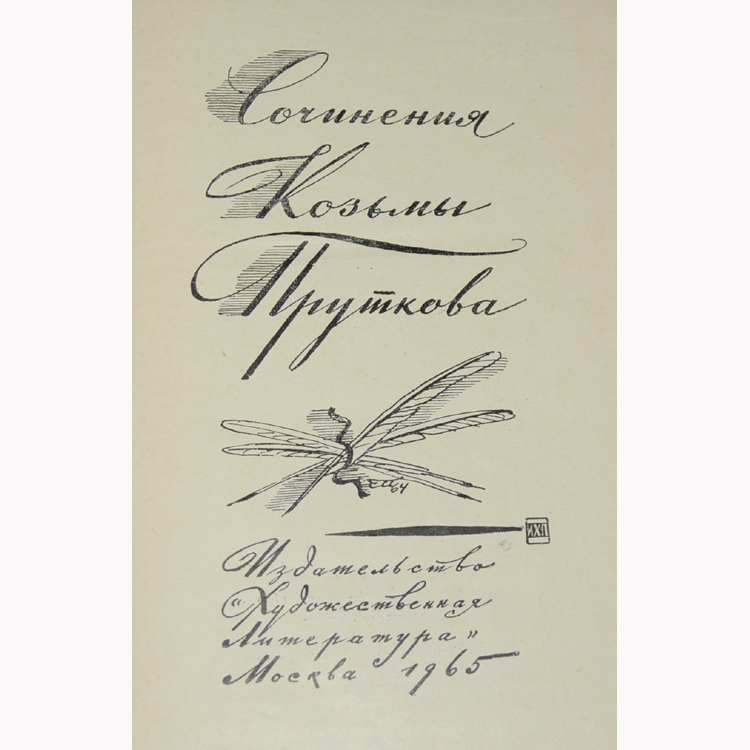 Сочинения
Козьмы
Пруткова
64
Издательство
"Художественная
Литература"
Москва 1965